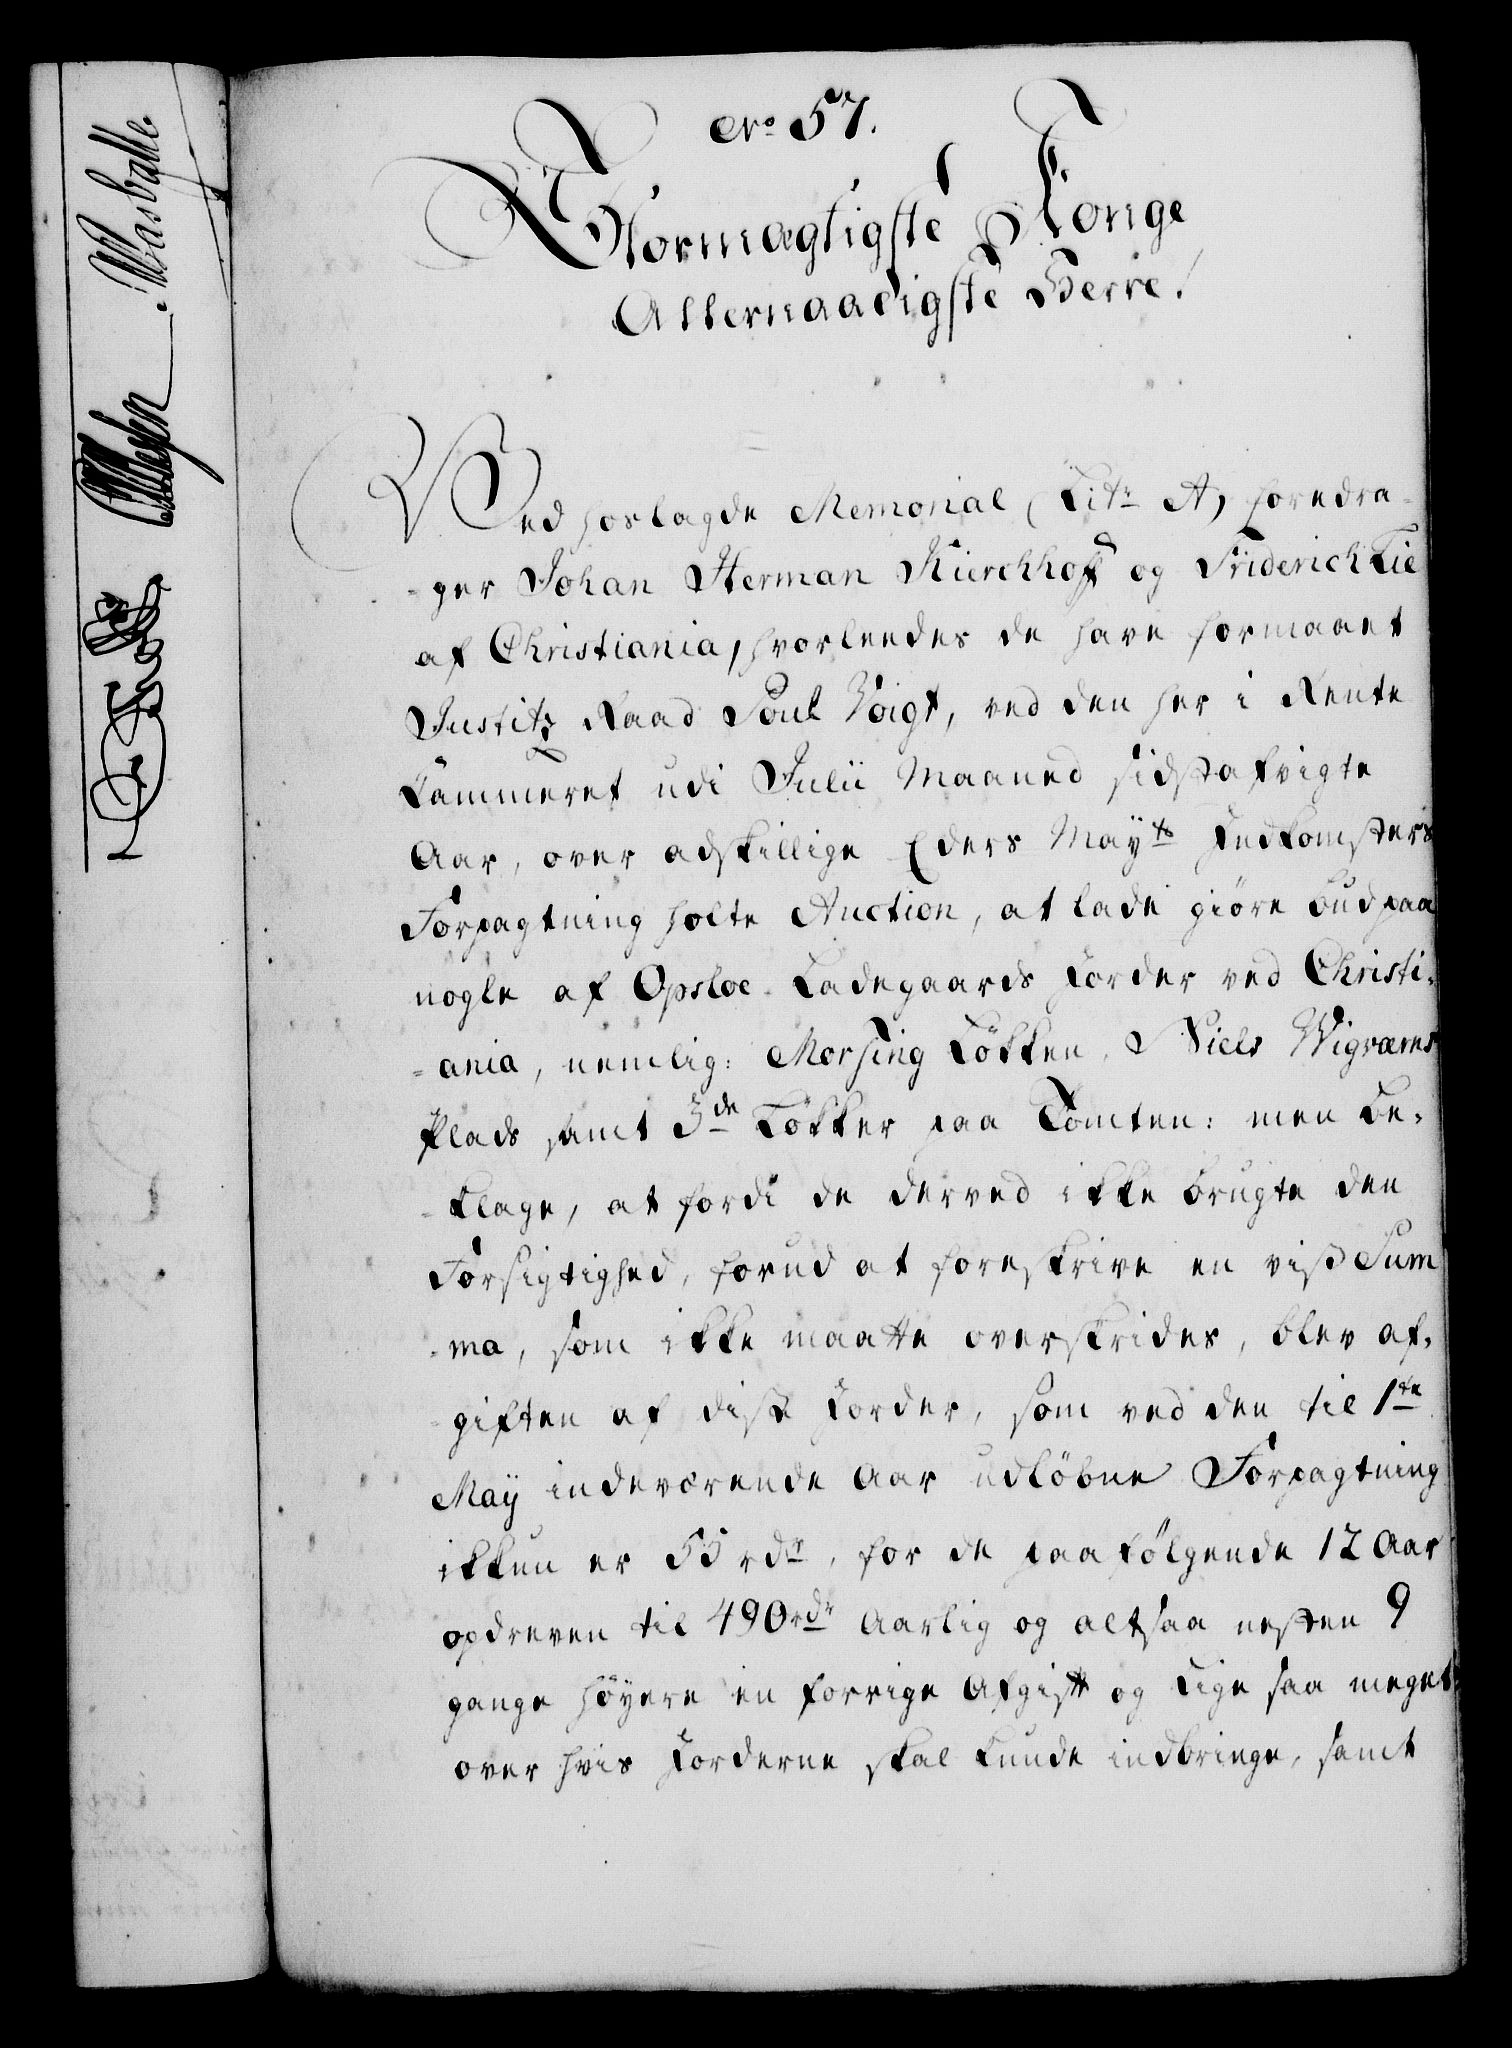 Nro 57.
Stormægtigste Konge
Allernaadigste Herre!
Ved hoslagde Memorial (Litr A) foredra-
-ger Johan Herman Kierchhoff og Friderich Lie
af Christiania, hvorleedes de have formaaet
Justitz Raad Poul Voigt, ved den her i Rente
Kammeret udi Julii Maaned sidstafvigte
Aar, over adskillige Eders Mayts Indkomsters
Forpagtning holte Auction, at lade giøre bud paa
nogle af Opsloe Ladegaards Jorder ved Christi-
-ania, nemlig: Morsing Løkken, Niels Wigræms
Plads samt 3de Løkker paa Tomten: men be-
-klage, at fordi de derved ikke brugte den
Forsigtighed, forud at foreskrive en viss Sum
-ma, som ikke maatte overskrides, blev af-
-giften af disse Jorder, som ved den til 1te
May indeværende Aar udløbne Forpagtning
ikkun er 55 rdr, for de paafølgende 12 Aar
opdreven til 490 rdr Aarlig og altsaa nesten 9
gange høyere en forrige Afgift og lige saa meget
over hvis Jorderne skal kunde indbringe, samt
Wasballe